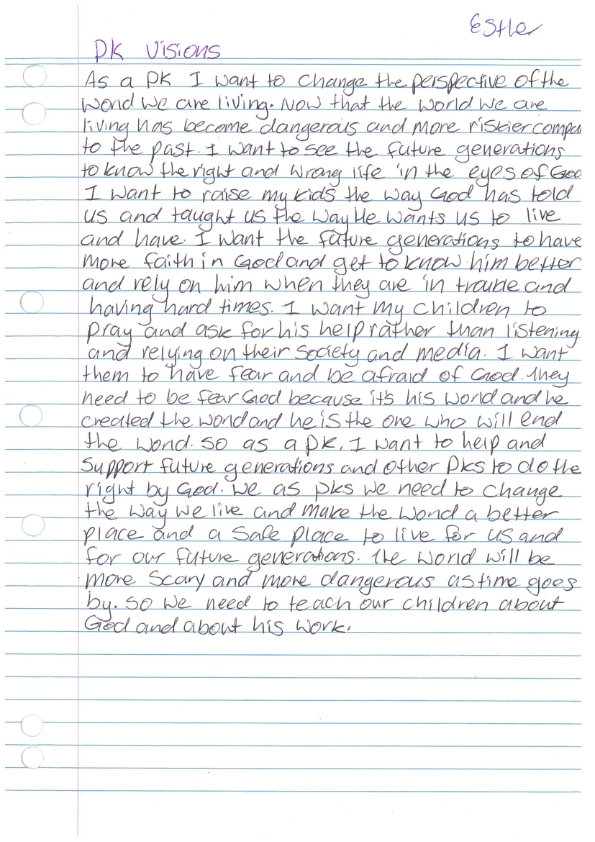 Esther
PK Visions
As a PK I want to change the perspective of the
world we are living. Now that the world we are
living has become dangerous and more riskier compa
to the past. I want to see the future generations
to know the right and wrong life in the eyes of God
I want to raise my kids the way God has told
us and taught us the way He wants us to live
and have. I want the future generations to have
more faith in God and get to know him better
and rely on him when they are in trouble and
having hard times. I want my children to
pray and ask for his help rather than listening
and relying on their society and media. I want
them to have fear and be afraid of God. They
need to be fear God because it's his world and he
created the world and he is the one who will end
the world. So as a PK, I want to help and
support future generations and other PKs to do the
right by God. We as PKs we need to change
the way we live and make the world a better
place and a safe place to live for us and
for our future generations. The world will be
more scary and more dangerous as time goes
by. So we need to teach our children about
God and about his work.